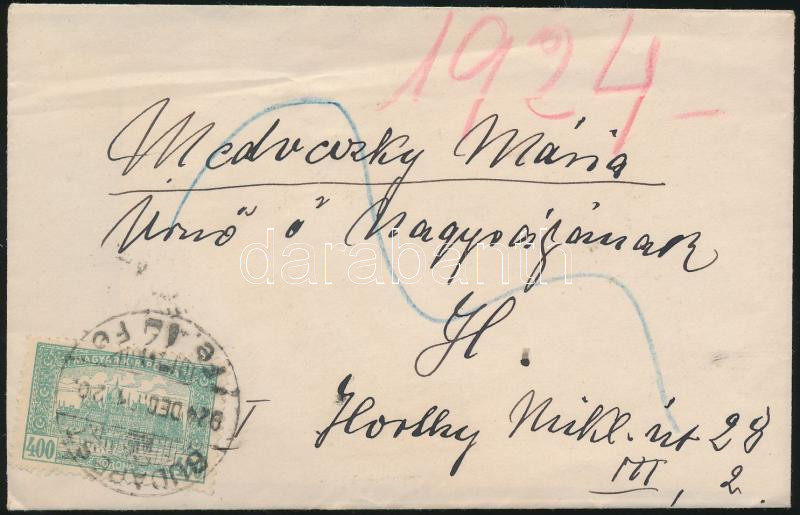 1924-
Medveczky Mária
Úrnő ő Nagyságának
darabanth
H.
I Horthy Mikl. út 28
III, 2.
MAGYAR KIR. POSTA
400
924 DEC
BUDAPEST